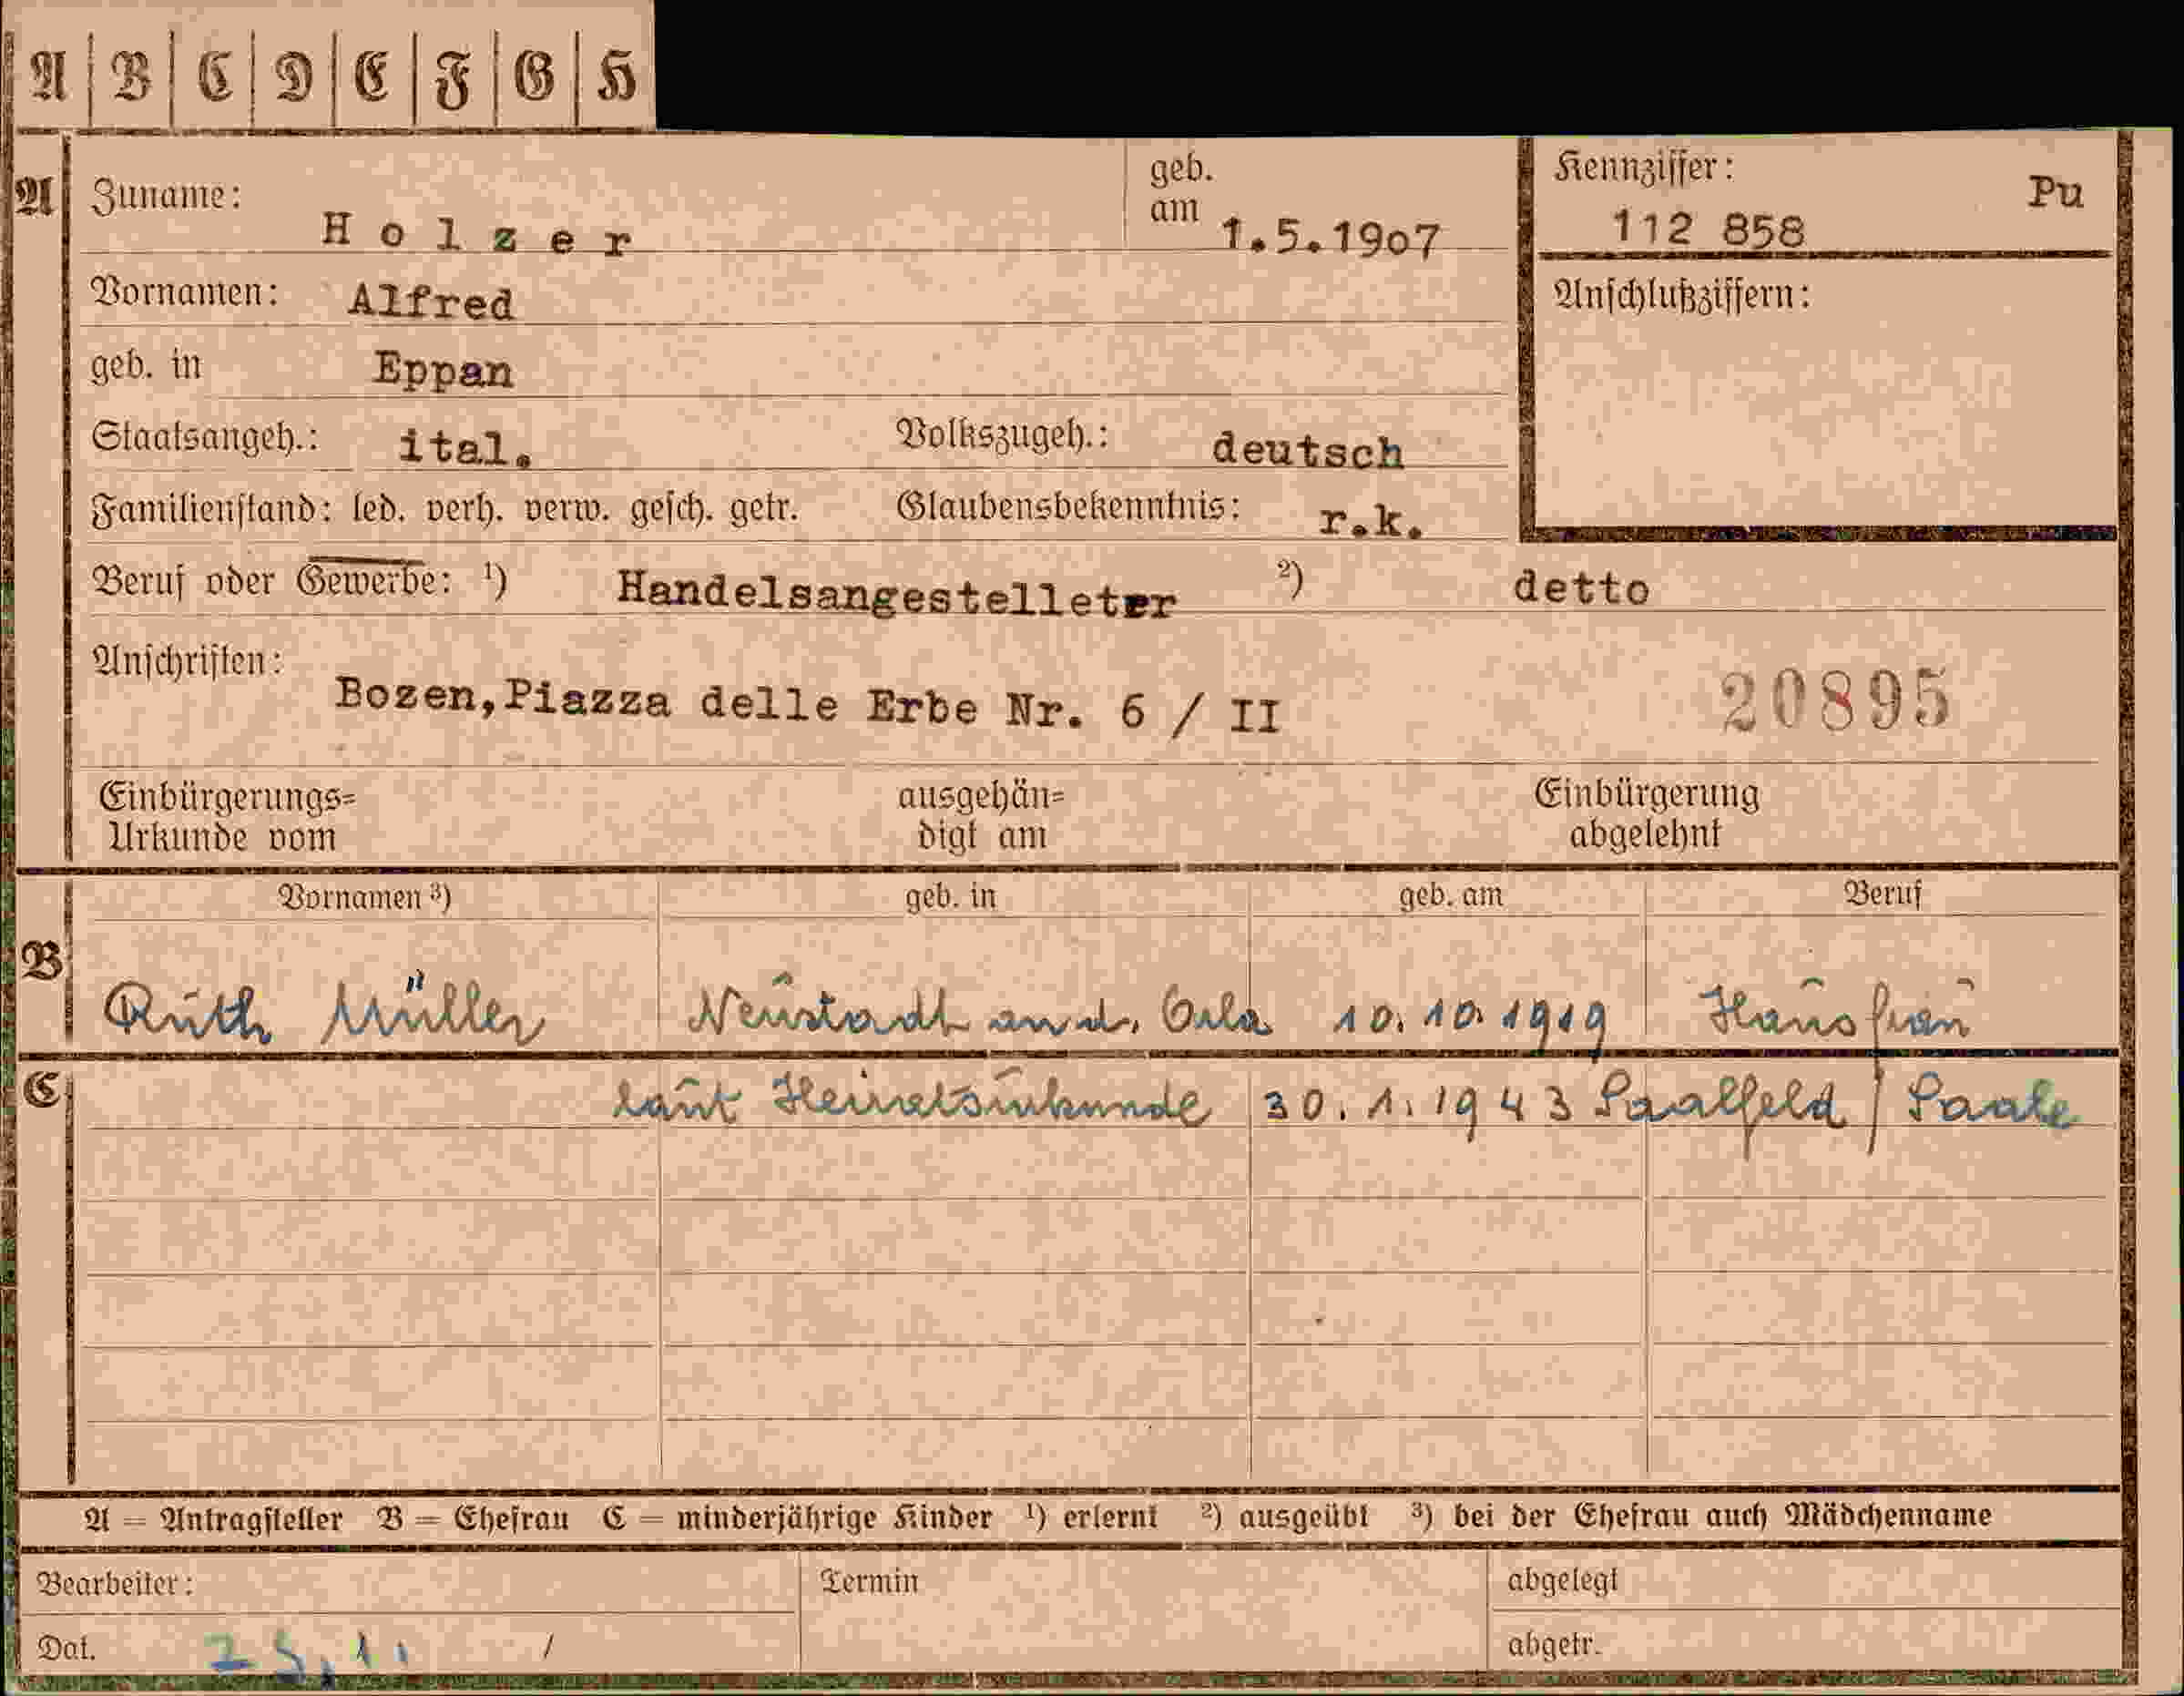 A B C D E F G H
A Zuname: Holzer geb. am 1.5.1907 Kennziffer: 112 858 Pu
Vornamen: Alfred Anschlußziffern:
geb. in Eppan
Staatsangeh.: ital. Volkszugeh.: deutsch
Familienstand: led. verh. verw. gesch. getr. Glaubensbekenntnis: r.k.
Beruf oder Gewerbe: ¹) Handelsangestelleter ²) detto
Anschriften: Bozen,Piazza delle Erbe Nr. 6 / II 20895
Einbürgerungs= ausgehän= Einbürgerung
Urkunde vom digt am abgelehnt
Vornamen ³) geb. in geb. am Beruf
B Ruth Müller Neustadt an d. Orla 10.10.1919 Hausfrau
C laut Heiratsurkunde 30.1.1943 Saalfeld / Saale
A = Antragsteller B = Ehefrau C = minderjährige Kinder ¹) erlernt ²) ausgeübt ³) bei der Ehefrau auch Mädchenname
Bearbeiter: Termin abgelegt
Dat. / abgetr.